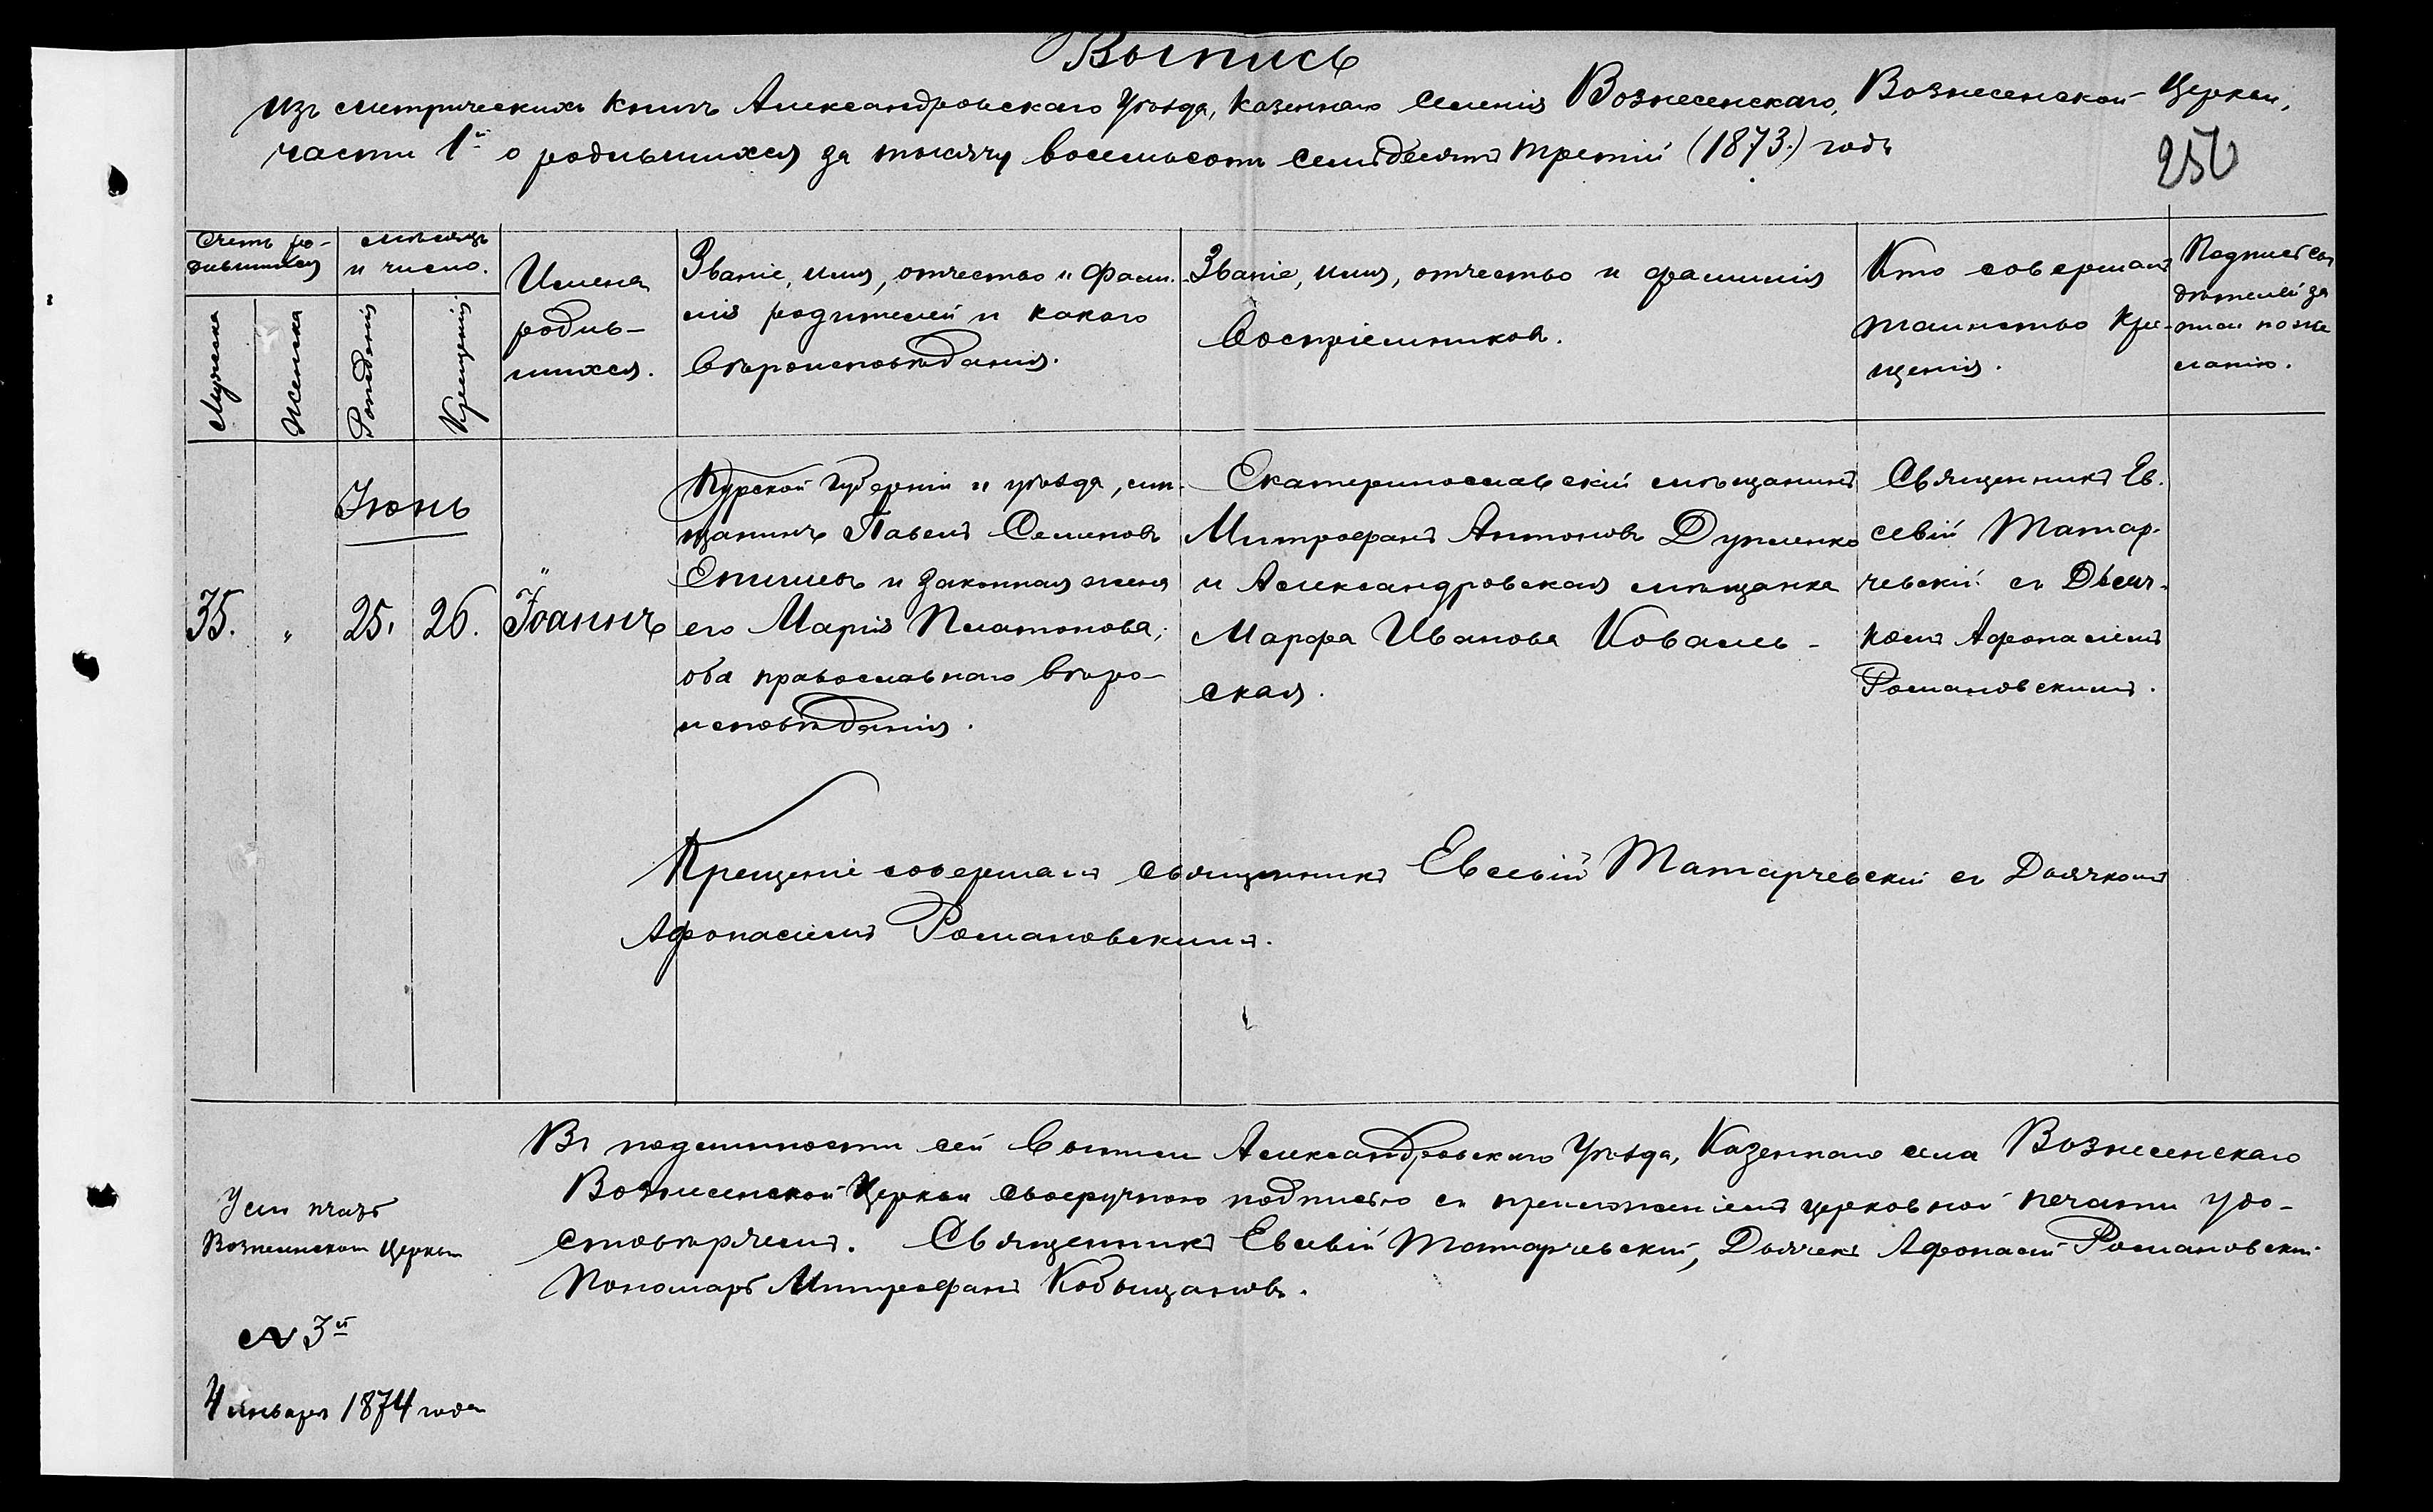 Выпись
изъ метрическихъ книгъ Александровскаго Уѣзда, казеннаго селенія Вознесенскаго, Вознесенской Церкви,
части 1й о родившихся за тысячу восемьсотъ семьдесятъ третій (1873.) годъ
256
Счетъ ро-
дившихся
Мужеска
Женска
мѣсяцъ
и число.
Рожденія
Крещенія
Имена
родив-
шихся.
Званіе, имя, отчество и фами-
лія родителей и какого
вѣроисповѣданія.
Званіе, имя, отчество и фамилія
воспріемниковъ.
Кто совершалъ
таинство Кре-
щенія.
Подпись сви
дѣтелей за
писи по же
ланію.
35.
"
Іюнь
25.
26.
Іоаннъ
Курской Губерніи и уѣзда, мѣ-
щанинъ Павелъ Семеновъ
Епишевъ и законная жена
его Марія Платонова,
оба православнаго вѣро-
исповѣданія.
Екатеринославскій мѣщанинъ
Митрофанъ Антоновъ Дупленко
и Александровская мѣщанка
Марфа Иванова Коваль-
ская.
Священникъ Ев-
севій Татар-
чевскій съ Дьяч-
комъ Афонасіемъ
Романовскимъ.
Крещеніе совершалъ священникъ Евсевій Татарчевскій съ Дьячкомъ
Афонасіемъ Романовскимъ.
Въ подлинности сей выписи Александровскаго Уѣзда, Казеннаго села Вознесенскаго
Вознесенской Церкви своеручною подписью съ приложеніемъ церковной печати удо-
стовѣряемъ. Священникъ Евсевій Татарчевскій, Дьячекъ Афонасій Романовскій
Пономарь Митрофанъ Кобыщановъ.
Вознесенской Церкви
№ 3й
4 января 1874 года